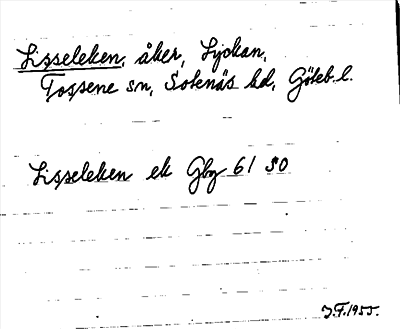 Lisseleken, åker, Lyckan,
Tossene sn, Sotenäs hd, Göteb. l.
Lisseleken ek Gbg 61 SO
J.F. 1955.